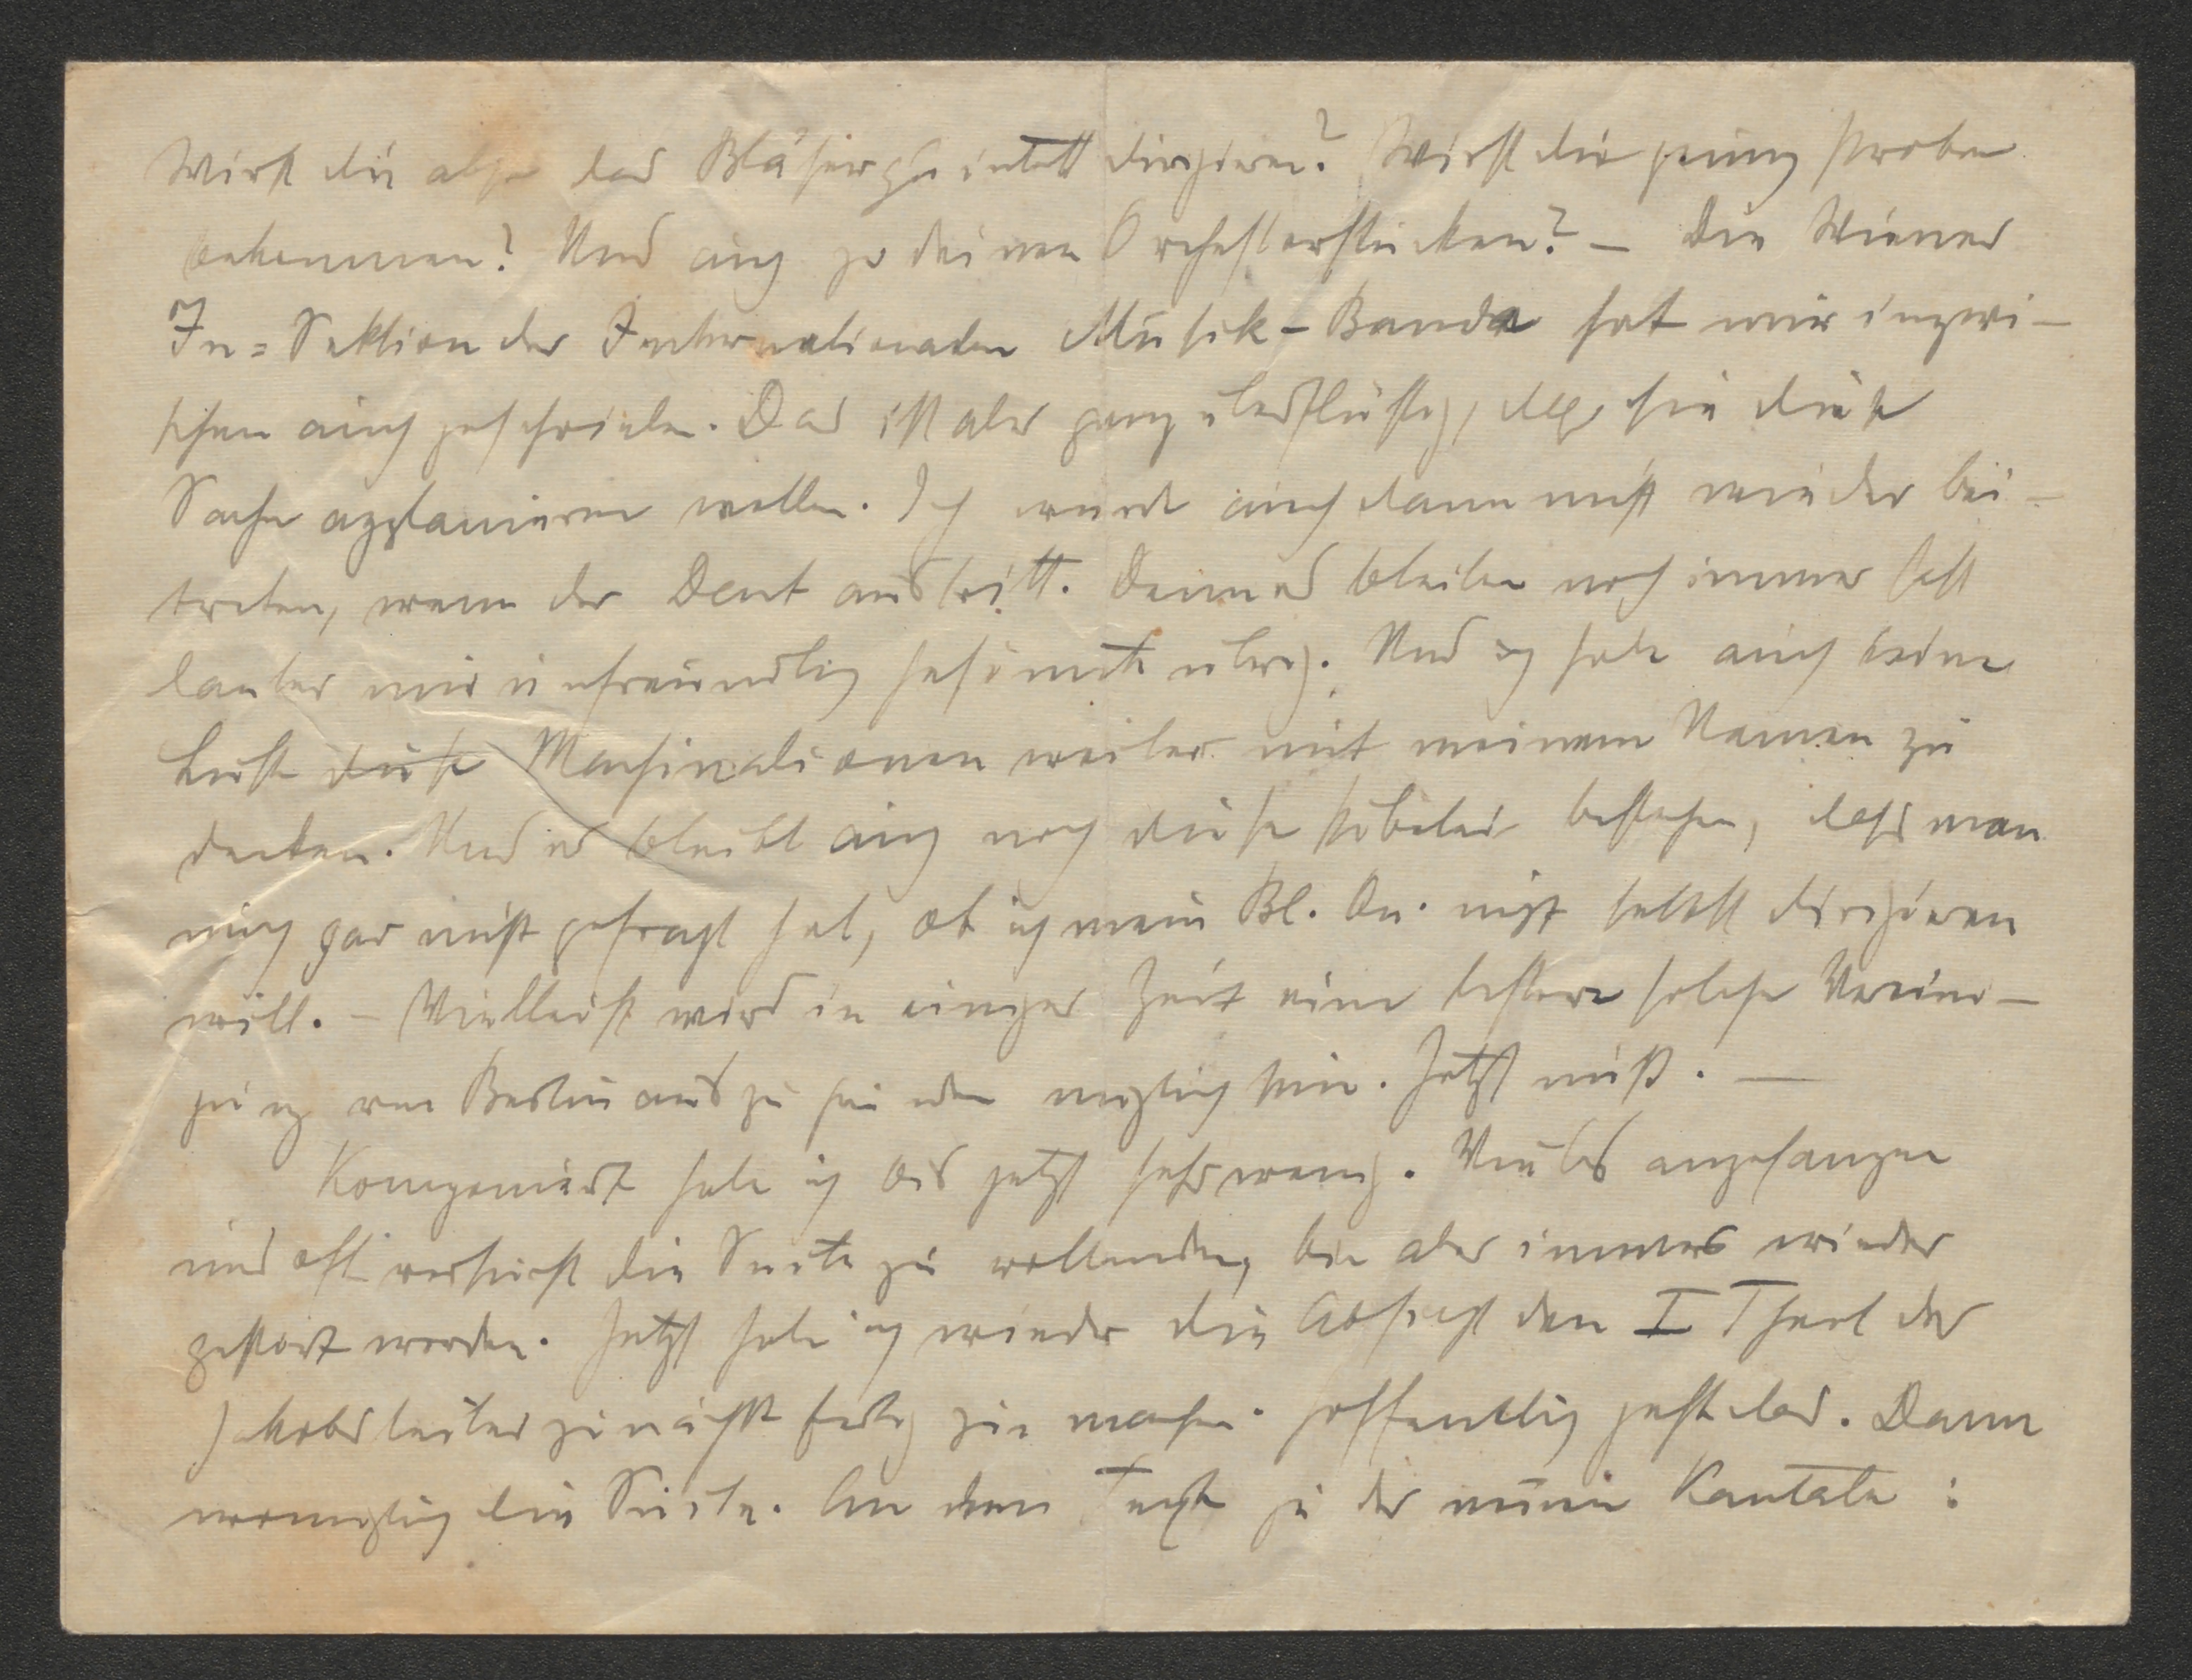 Wirst du also das Bläserquintett dirigieren? Wirst du genug Proben
bekommen? Und auch zu deinen Orchesterstücken? – Die Wiener
In=Sektion der Internationalen Musik-Bande hat mir inzwi-
schen auch geschrieben. Das ist aber ganz überflüssig, dass sie diese
Sache applanieren wollen. Ich werde auch dann nicht wieder bei-
treten, wenn der Dent austritt. Denn es bleiben noch immer fast
lauter mir unfreundlich Gesinnte übrig. Und ich habe auch keine
Lust diese Machinationen weiter mit meinem Namen zu
decken. Und es bleibt auch noch diese bestehen, dass man
mich gar nicht gefragt hat, ob ich mein Bl. Qu. nicht selbst dirigieren
will. – Vielleicht wird in einiger Zeit eine bessere solche Vereini-
gung von Berlin aus zu gründen möglich sein. Jetzt nicht. –
Komponiert habe ich bis jetzt sehr wenig. Vieles angefangen
und oft versucht die Suite zu vollenden, bin aber immer wieder
gestört worden. Jetzt habe ich wieder die Absicht den I Theil der
Jakobsleiter zunächst fertig zu machen. Hoffentlich geht das. Dann
womöglich die Suite. An dem Text zu der neuen Kantate :